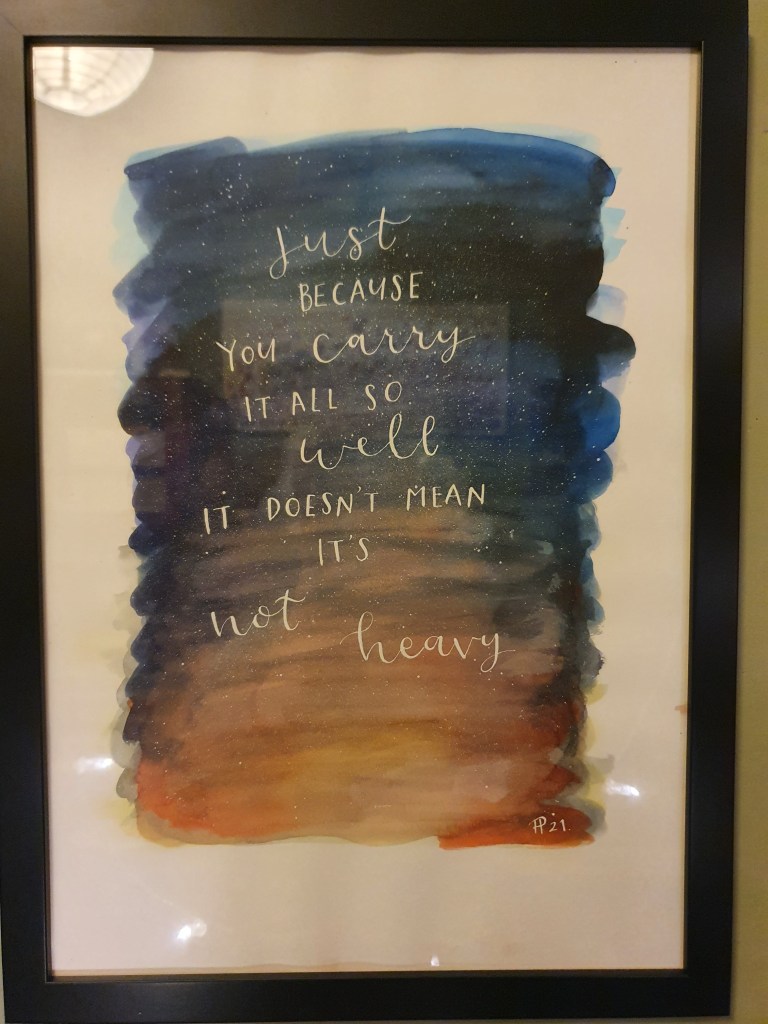 Just
BECAUSE
YOU carry
IT ALL SO
well
IT DOESN'T MEAN
IT'S
not heavy
AP 21